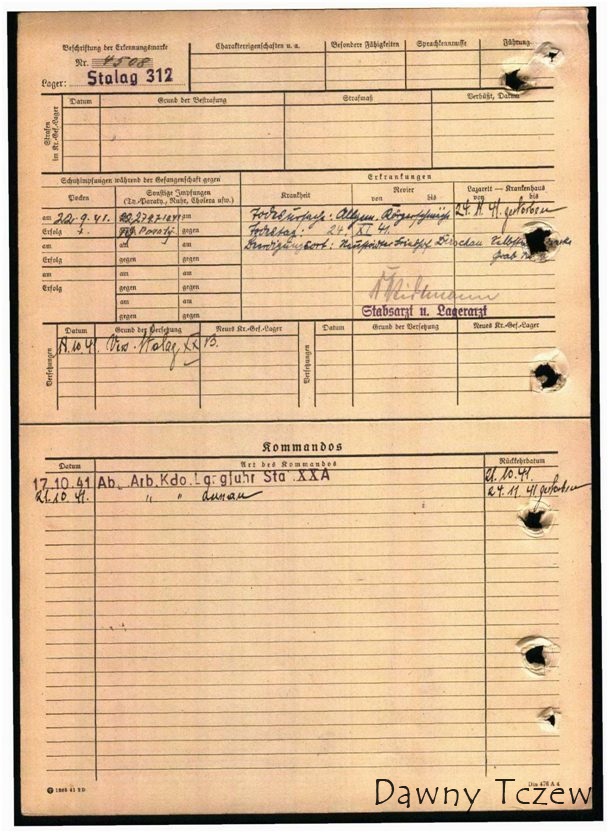 Beschriftung der Erkennungsmarke
Nr. 4508
Lager: Stalag 312
Charaktereigenschaften u. a.
Besondere Fähigkeiten
Sprachkenntnisse
Führung
Strafen im Kr.-Gef.-Lager
Datum
Grund der Bestrafung
Strafmaß
Verbüßt, Datum
Schutzimpfungen während der Gefangenschaft gegen
Erkrankungen
Pocken
Sonstige Impfungen
(Ty.-Paraty., Ruhr, Cholera usw.)
Krankheit
Revier
von bis
Lazarett — Krankenhaus
von bis
am 22.9.41. am
Erfolg + gegen
am am
am gegen
Erfolg am
gegen
am
gegen
Todesursache: Allgem. Körperschwäche 24.11.41. gestorben
Todestag: 24. XI 41.
Beerdigungsort: Dirschau
Grab No
Stabsarzt u. Lagerarzt
Versetzungen
Datum
Grund der Versetzung
Neues Kr.-Gef.-Lager
Stalag XX B.
Versetzungen
Datum
Grund der Versetzung
Neues Kr.-Gef.-Lager
Kommandos
Datum
Art des Kommandos
Rückkehrdatum
17.10.41 Ab. Arb.Kdo. Sta .XXA 21.10.41.
21.10.41. " " 24.11.41 gestorben
Din 476 A 4
Dawny Tczew